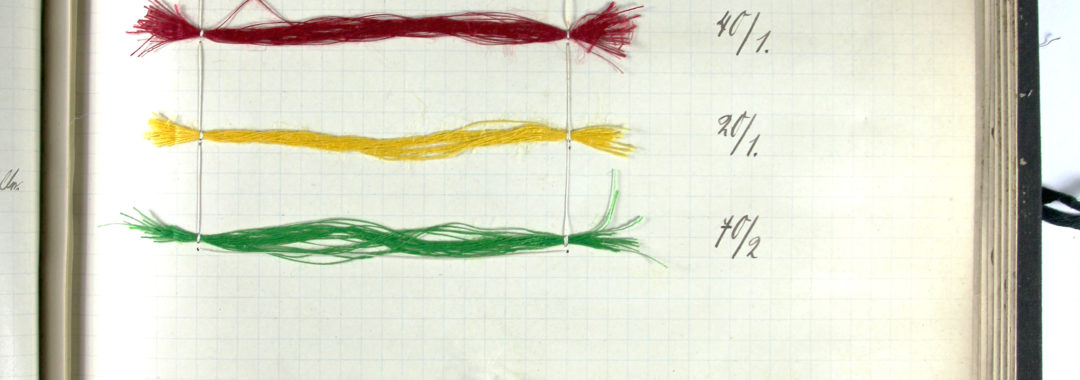 40/1.
20/1.
40/2